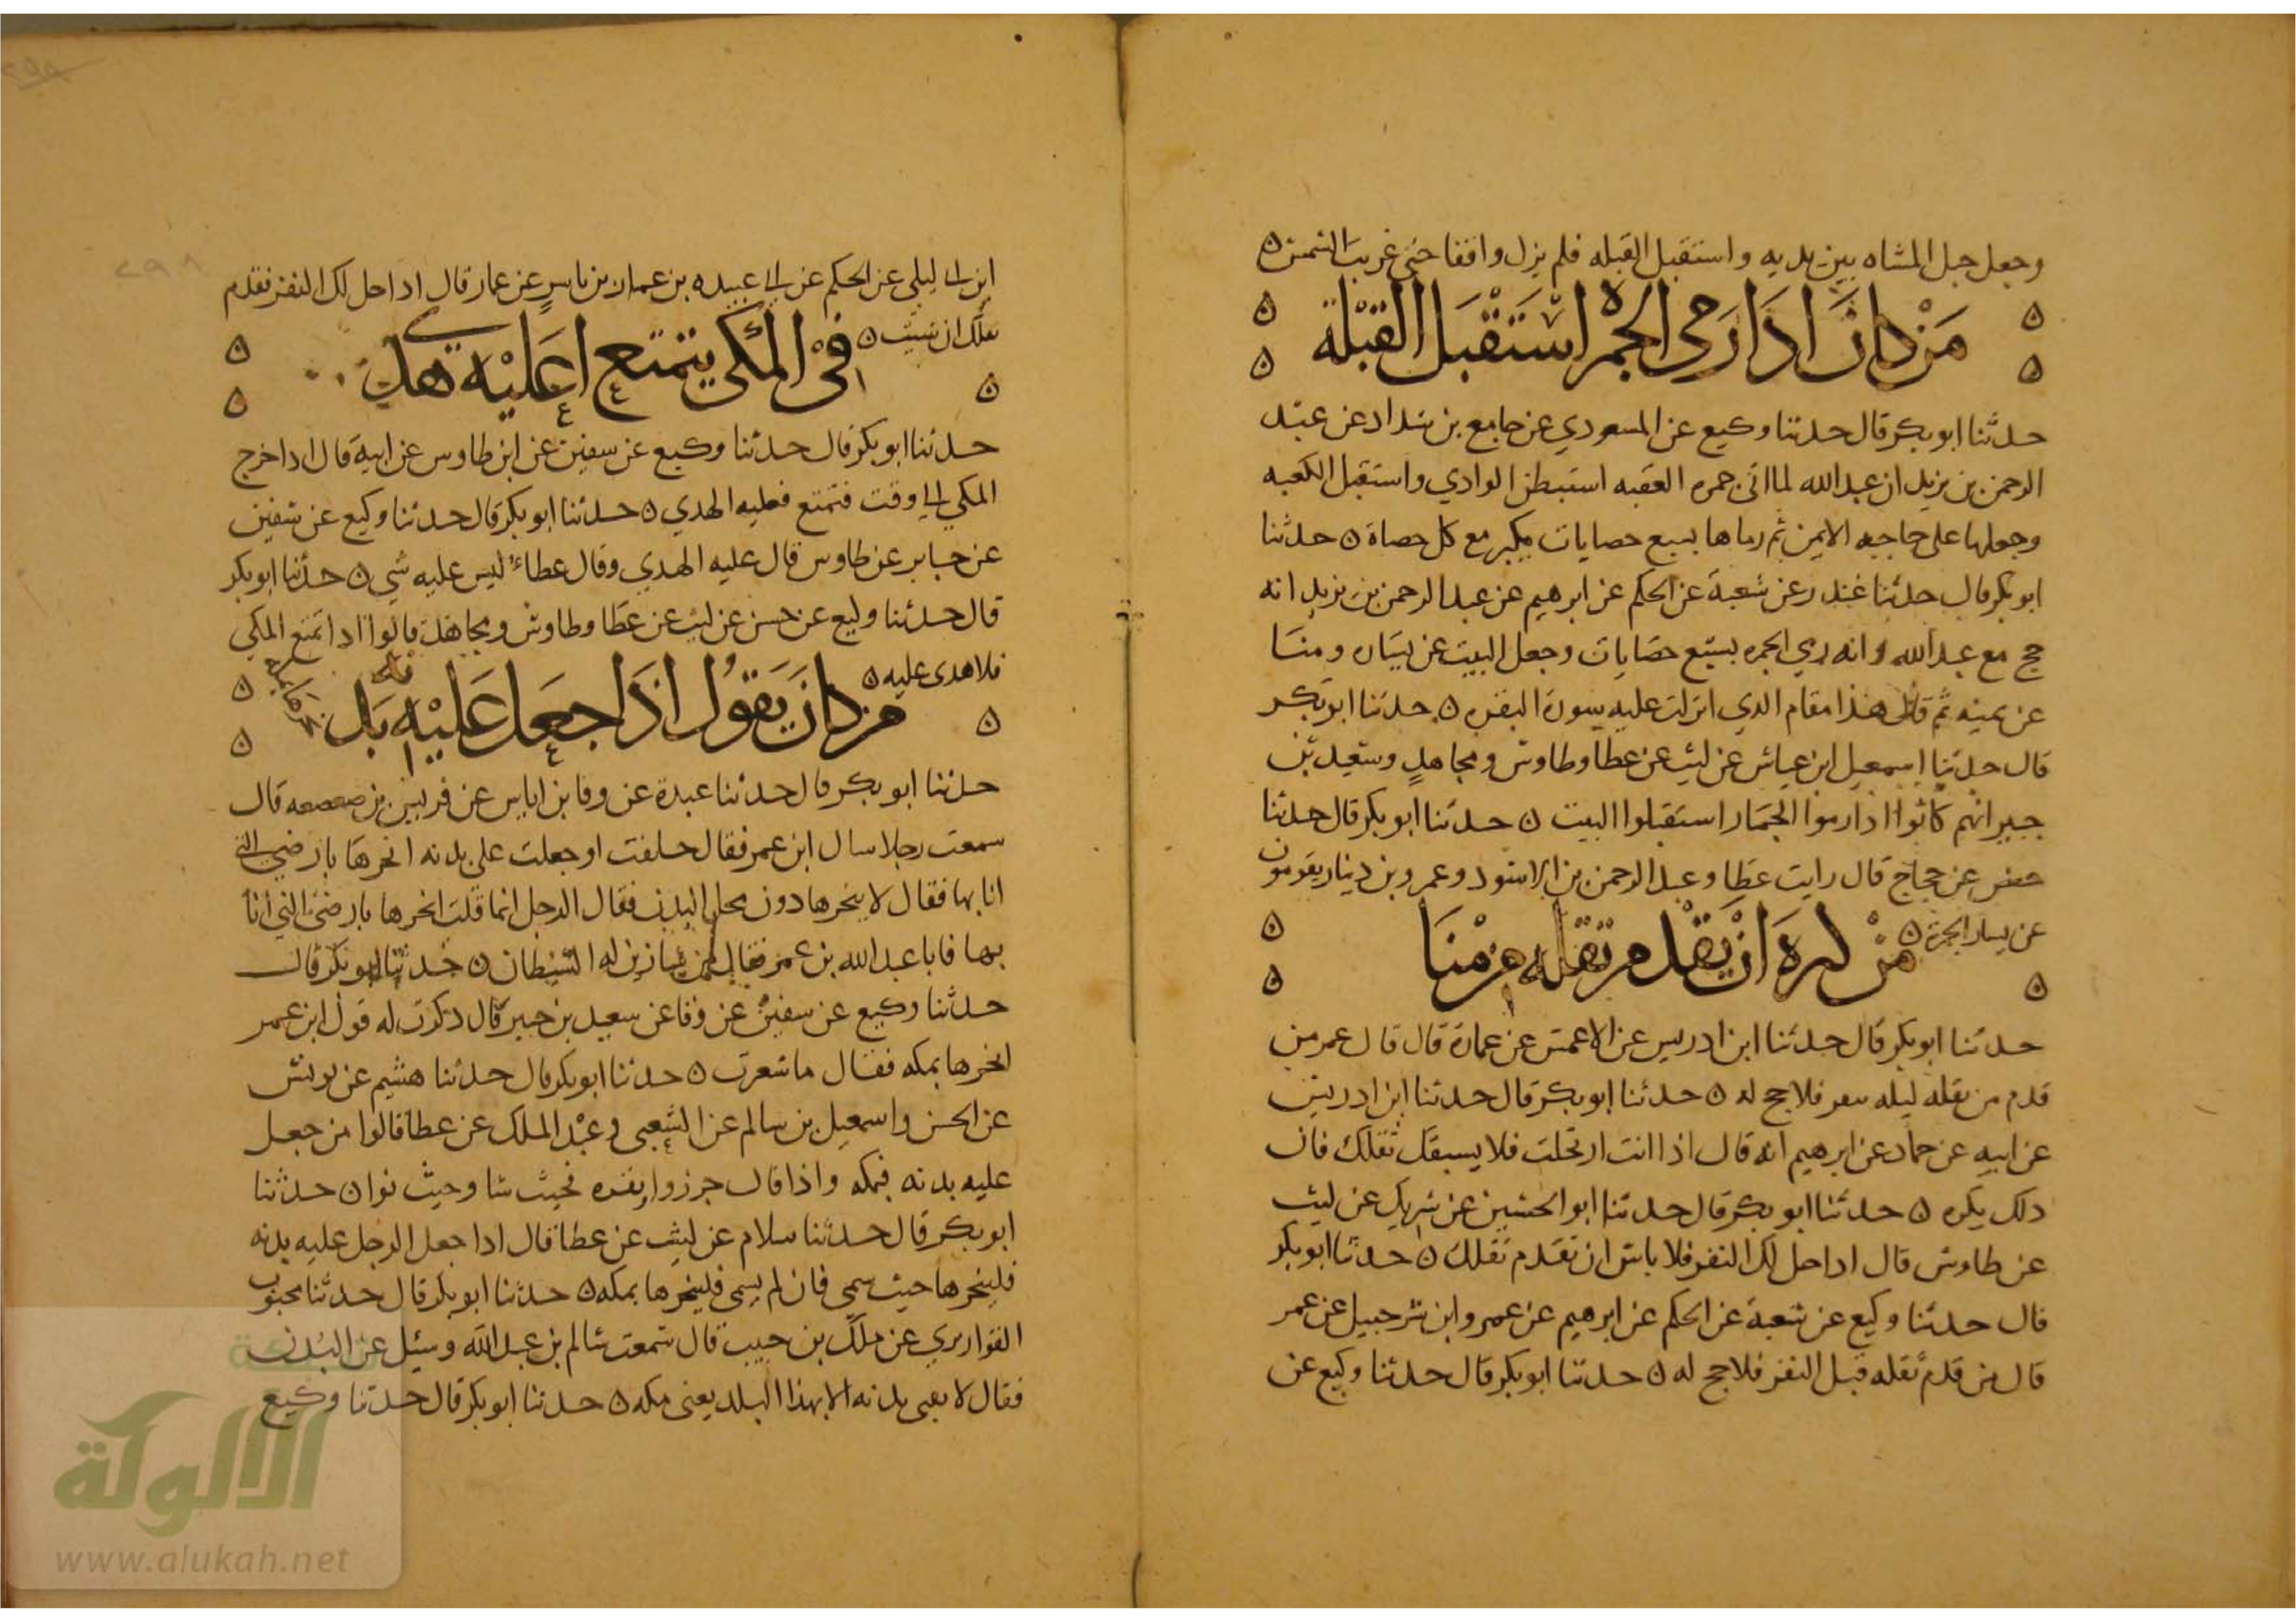 وجعل جبل المشاه بين يديه واستقبل القبله فلم يزل واقفا حتى غربت الشمس ٥
من كان اذا رمى الجمره استقبل القبلة
حدثنا ابو بكر قال حدثنا وكيع عن المسعودي عن جامع بن شداد عن عبد
الرحمن بن يزيد ان عبد الله لما اتى جمره العقبه استبطن الوادي واستقبل الكعبه
وجعلها على حاجبه الايمن ثم رماها بسبع حصايات يكبر مع كل حصاة ٥ حدثنا
ابو بكر قال حدثنا غندر عن شعبة عن الحكم عن ابرهيم عن عبد الرحمن بن يزيد انه
حج مع عبد الله وانه رمي الجمره بسبع حصايات وجعل البيت عن يساره ومنا
عن يمينه ثم قال هذا مقام الذي انزلت عليه سورة البقره ٥ حدثنا ابو بكر
قال حدثنا اسمعيل ابن عياش عن ليث عن عطا وطاوس ومجاهد وسعيد بن
جبير انهم كانوا اذا رموا الجمار استقبلوا البيت ٥ حدثنا ابو بكر قال حدثنا
حفص عن حجاج قال رايت عطا وعبد الرحمن بن الاسود وعمرو بن دينار يقومون
عن يسار الجمرة ٥
من كره ان يقدم ثقله من منا
حدثنا ابو بكر قال حدثنا ابن ادريس عن الاعمش عن عمارة قال قال عمر من
قدم من ثقله ليله ينفر فلا حج له ٥ حدثنا ابو بكر قال حدثنا ابن ادريس
عن ابيه عن حماد عن ابرهيم انه قال اذا انت ارتحلت فلا يسبقك ثقلك فان
ذلك يكره ٥ حدثنا ابو بكر قال حدثنا ابو الحسين عن شريك عن ليث
عن طاوس قال اذا حل لك النفر فلا باس ان تقدم ثقلك ٥ حدثنا ابو بكر
قال حدثنا وكيع عن شعبة عن الحكم عن ابرهيم عن عمرو ابن شرحبيل عن عمر
قال من قدم ثقله قبل النفر فلا حج له ٥ حدثنا ابو بكر قال حدثنا وكيع عن
ابن ابي ليلى عن الحكم عن ابي عبيده بن عمار بن ياسر عن عمار قال اذا حل لك النفر فقدم
ثقلك ان شيت ٥
في المكي يتمتع اعليه هدي
حدثنا ابو بكر قال حدثنا وكيع عن سفين عن ابن طاوس عن ابيه قال اذا خرج
المكي الى وقت فتمتع فعليه الهدي ٥ حدثنا ابو بكر قال حدثنا وكيع عن سفين
عن جابر عن طاوس قال عليه الهدي وقال عطاء ليس عليه شي ٥ حدثنا ابو بكر
قال حدثنا وكيع عن حسن عن ليث عن عطا وطاوس ومجاهد قالوا اذا تمتع المكي
فلا هدى عليه ٥
من كان يقول اذا جعل عليه بدنه
حدثنا ابو بكر قال حدثنا عبدة عن وقا بن اياس عن صعصعه قال
سمعت رجلا سال ابن عمر فقال حلفت او جعلت على بدنه انحرها بارضي التي
انا بها فقال لا ينحرها دون محل البدن فقال الرجل انما قلت انحرها بارضى التي انا
بها فابا عبد الله بن عمر فقال الشيطان ٥ حدثنا ابو بكر قال
حدثنا وكيع عن سفين عن وقا عن سعيد بن جبير قال ذكرت له قول ابن عمر
انحرها بمكه فقال ما شعرت ٥ حدثنا ابو بكر قال حدثنا هشيم عن يونس
عن الحسن واسمعيل بن سالم عن الشعبي وعبد الملك عن عطا قالوا من جعل
عليه بدنه فبمكه واذا قال جزورا وبقره فحيث شا وحيث نوا ٥ حدثنا
ابو بكر قال حدثنا سلام عن ليث عن عطا قال اذا جعل الرجل عليه بدنه
فلينحرها حيث سمى فان لم يسمى فلينحرها بمكه ٥ حدثنا ابو بكر قال حدثنا محبوب
القواريري عن ملك بن حبيب قال سمعت سالم بن عبد الله وسئيل عن البدن
فقال لا بدنه الا بهذا البلد يعنى مكه ٥ حدثنا ابو بكر قال حدثنا وكيع
الألوكة
www.alukah.net